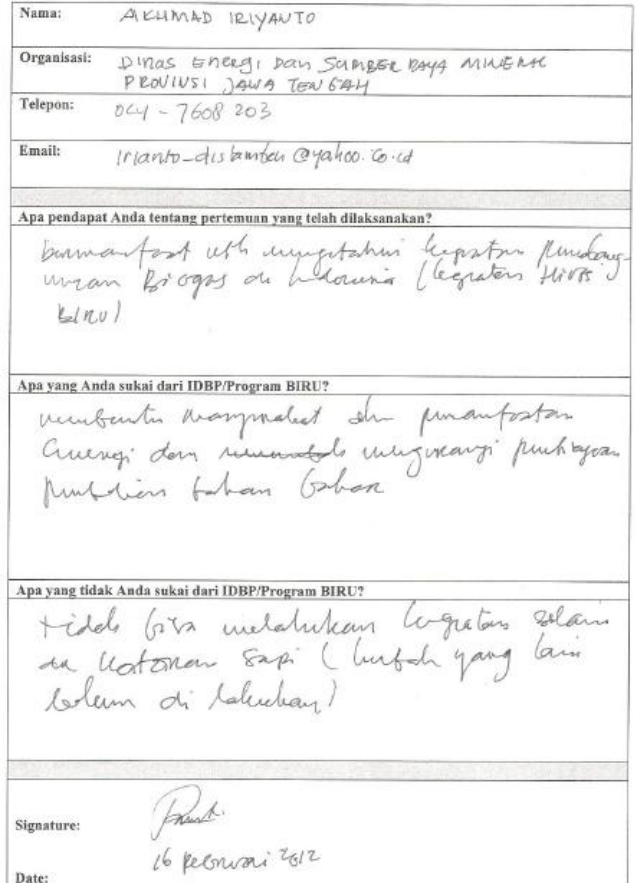 Nama: AKHMAD IRIYANTO
Organisasi: Dinas Energi Dan Sumber Daya Mineral
PROVINSI JAWA TENGAH
Telepon: 024 - 7608 203
Email: irianto_distamben@yahoo.co.id
Apa pendapat Anda tentang pertemuan yang telah dilaksanakan?
bermanfaat utk mengetahui kegiatan
Biogas di Indonesia (kegiatan Hivos
BIRU)
Apa yang Anda sukai dari IDBP/Program BIRU?
membantu masyarakat dlm pemanfaatan
energi dan mengurangi pembiayaan
pembelian bahan bakar
Apa yang tidak Anda sukai dari IDBP/Program BIRU?
tidak bisa melakukan kegiatan selain
di kotoran sapi (limbah yang lain
belum di lakukan)
Signature:
16 Februari 2012
Date: